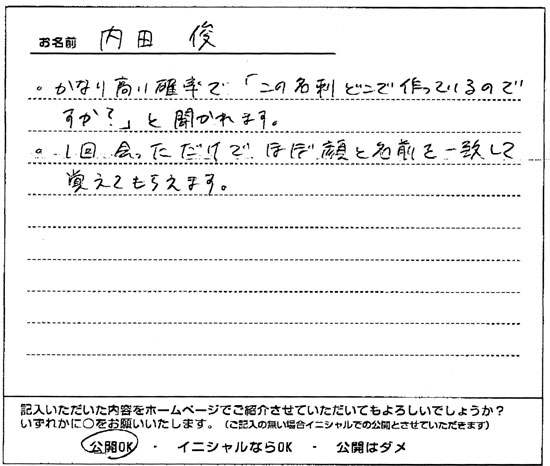 お名前 内田 俊
。かなり高い確率で「この名刺どこで作っているので
すか?」と聞かれます。
。1回会っただけでほぼ顔と名前を一致して
覚えてもらえます。
記入いただいた内容をホームページでご紹介させていただいてもよろしいでしょうか?
いずれかに○をお願いいたします。(ご記入の無い場合イニシャルでの公開とさせていただきます)
公開OK ・ イニシャルならOK ・ 公開はダメ